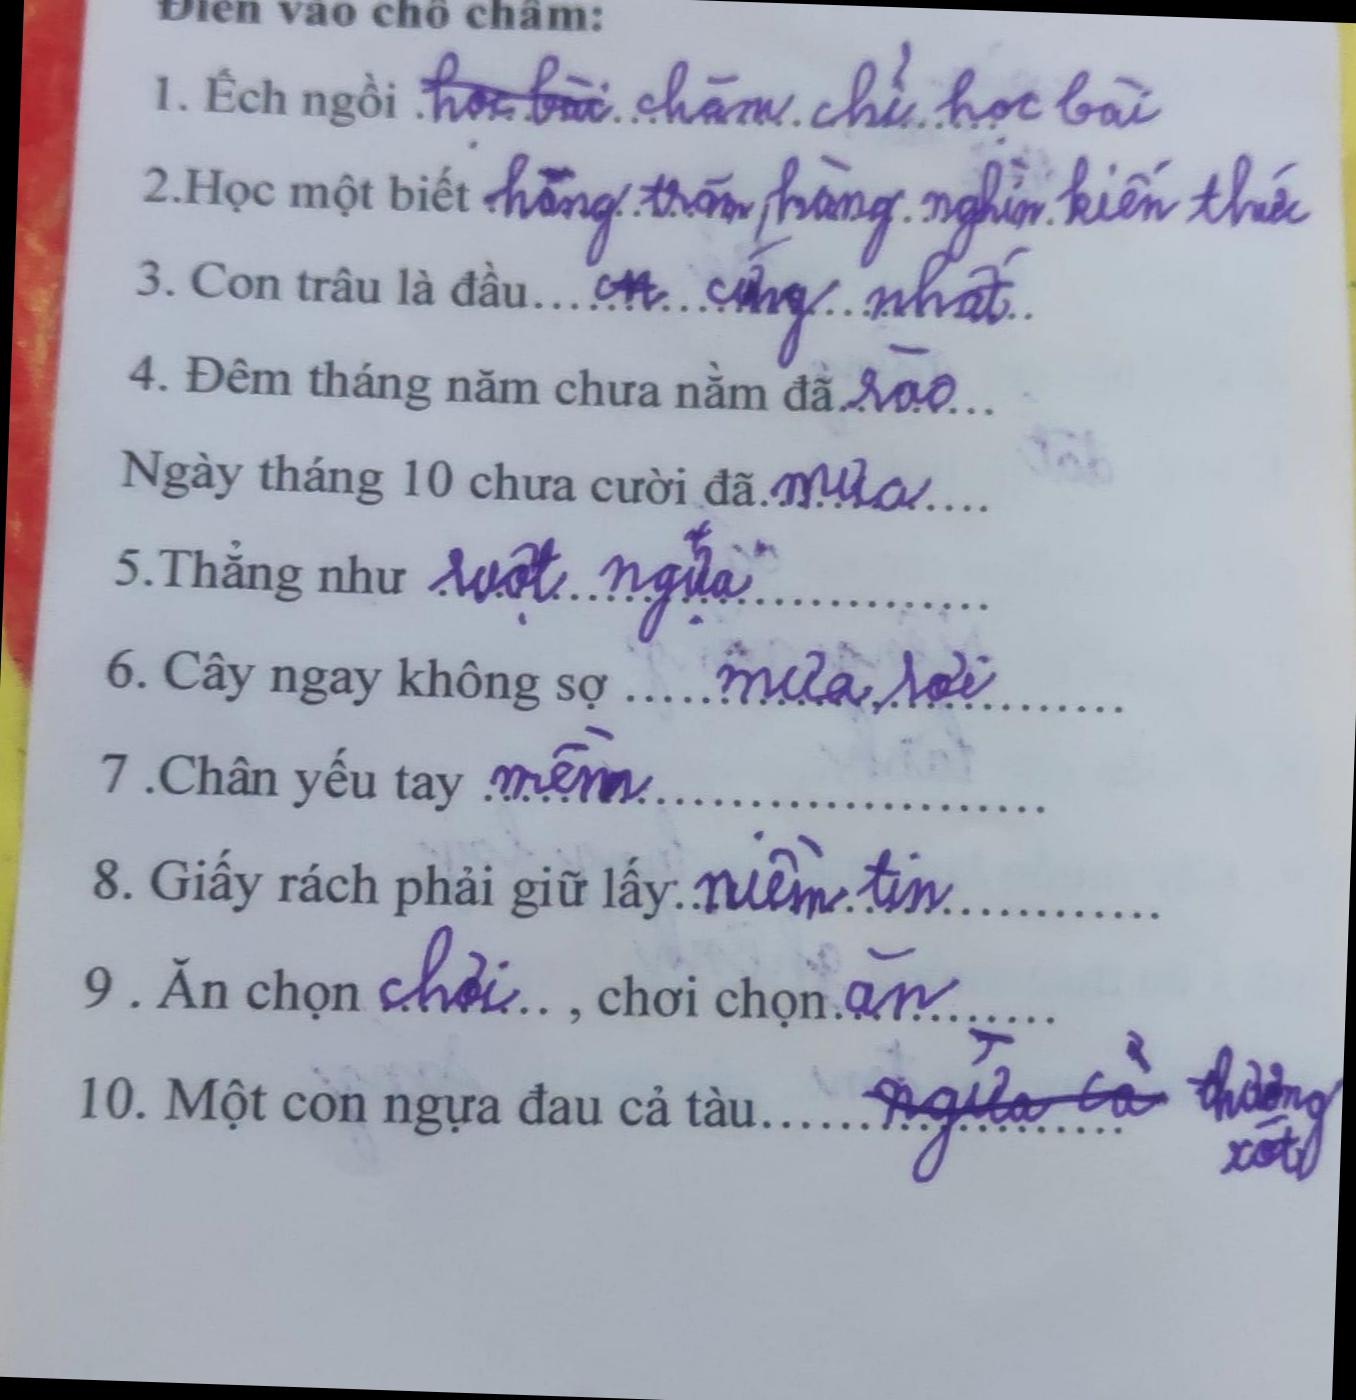 Điền vào chỗ chấm:
1. Ếch ngồi học bài chăm chỉ học bài
2.Học một biết hàng trăm, hàng nghìn kiến thức
3. Con trâu là đầu..... cứng nhất..
4. Đêm tháng năm chưa nằm đã..sáo...
Ngày tháng 10 chưa cười đã.mưa....
5.Thẳng như ruột ngựa..............
6. Cây ngay không sợ .....mưa, rơi.......
7 .Chân yếu tay mềm.....................
8. Giấy rách phải giữ lấy:..niềm tin............
9 . Ăn chọn chơi.. , chơi chọn.ăn.......
10. Một con ngựa đau cả tàu......ngựa cả thương
xót